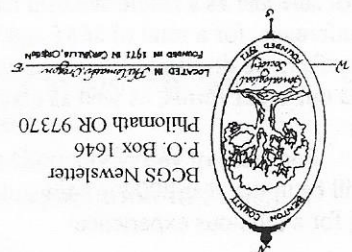 BCGS Newsletter
P.O. Box 1646
Philomath OR 97370
N
BENTON COUNTY
Genealogical
Society
FOUNDED 1971
W
E
LOCATED IN Philomath, Oregon
FOUNDED IN 1971 IN CORVALLIS, OREGON
S